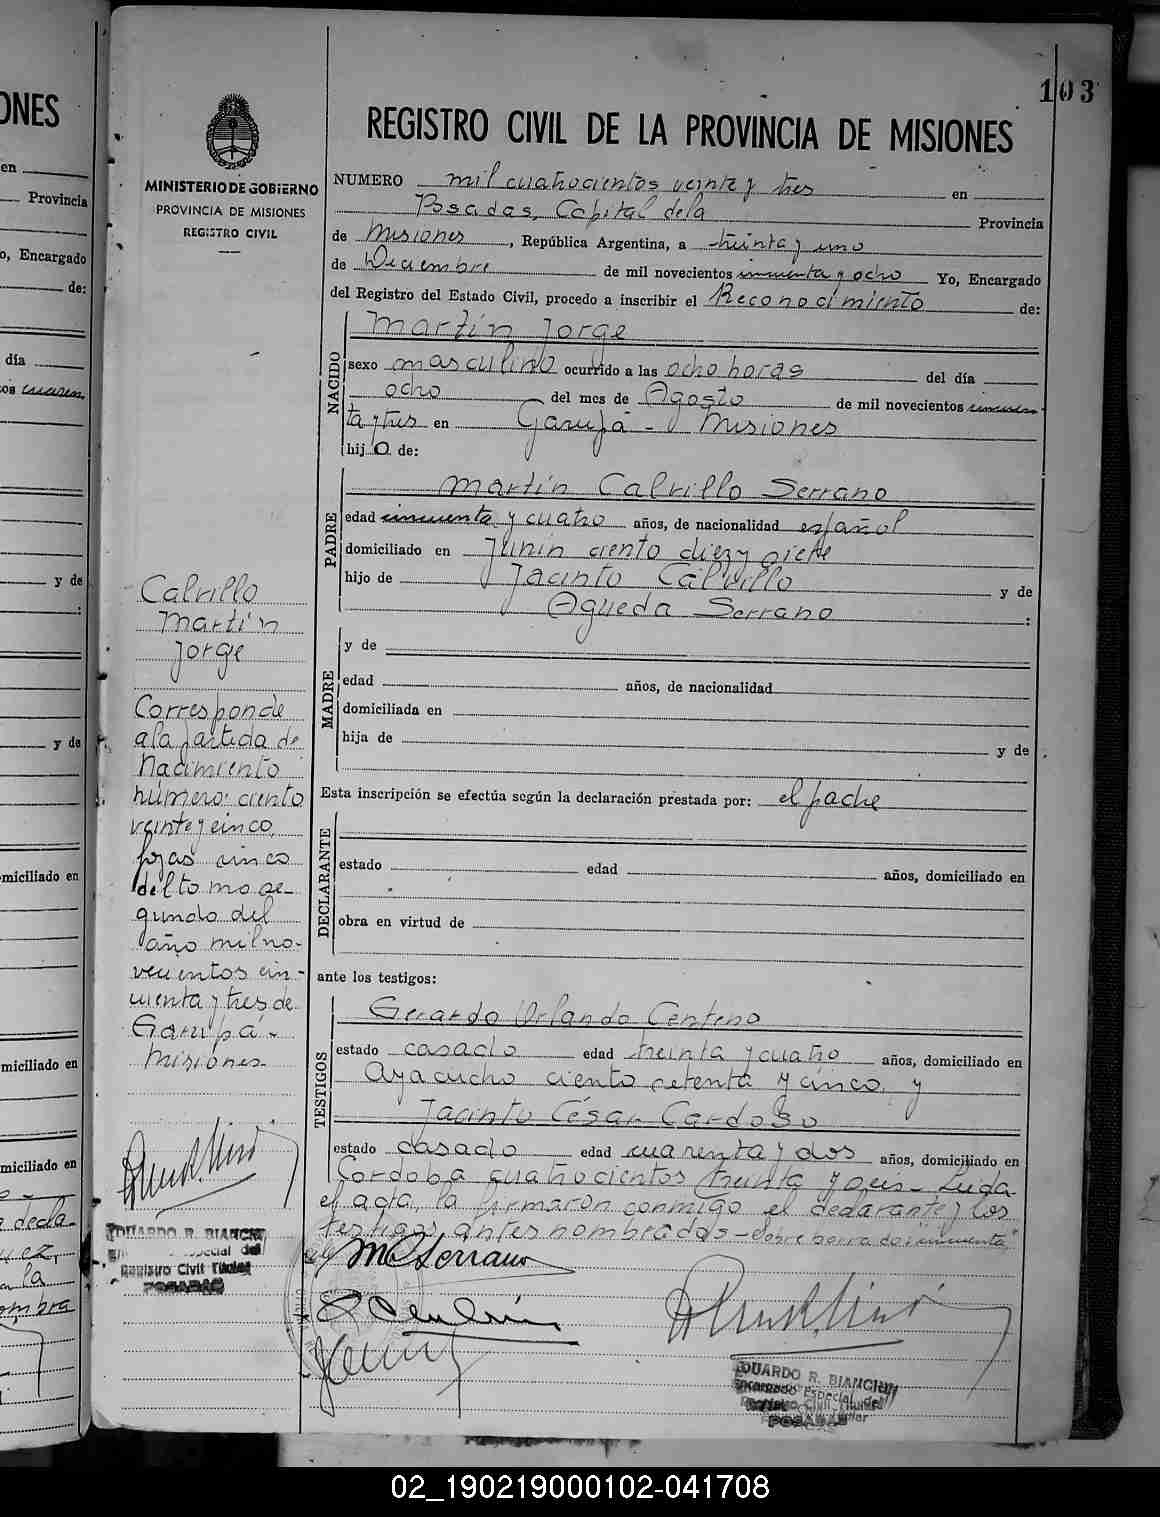 103
ONES
en
Provincia
o, Encargado
de:
día
os cuaren
y de
:
y de
miciliado en
miciliado en
miciliado en
decla-
uez,
a la
ombra
MINISTERIO DE GOBIERNO
PROVINCIA DE MISIONES
REGISTRO CIVIL
Calvillo
Martín
Jorge
Corresponde
a la partida de
Nacimiento
número: ciento
veinte y cinco,
fojas cinco
del tomo se-
gundo del
año mil no-
vecientos cin-
cuenta y tres de
Garupá -
Misiones.
EDUARDO R. BIANCHI
Especial del
Registro Civil Titular
POSADAS
REGISTRO CIVIL DE LA PROVINCIA DE MISIONES
NUMERO mil cuatrocientos veinte y tres en
Posadas, Capital de la Provincia
de Misiones, República Argentina, a treinta y uno
de Diciembre de mil novecientos cincuenta y ocho Yo, Encargado
del Registro del Estado Civil, procedo a inscribir el Reconocimiento de:
NACIDO
Martín Jorge
sexo masculino ocurrido a las ocho horas del día
ocho del mes de Agosto de mil novecientos cincuen-
ta y tres en Garupá - Misiones
hijo de:
PADRE
Martín Calvillo Serrano
edad cincuenta y cuatro años, de nacionalidad español
domiciliado en Junín ciento diez y siete
hijo de Jacinto Calvillo y de
Agueda Serrano :
MADRE
y de
edad años, de nacionalidad
domiciliada en
hija de y de
Esta inscripción se efectúa según la declaración prestada por: el padre
DECLARANTE
estado edad años, domiciliado en
obra en virtud de
ante los testigos:
TESTIGOS
Gerardo Orlando Centeno
estado casado edad treinta y cuatro años, domiciliado en
Ayacucho ciento setenta y cinco, y
Jacinto César Cardoso
estado casado edad cuarenta y dos años, domiciliado en
Córdoba cuatrocientos treinta y seis - Leída
el acta, la firmaron conmigo el declarante y los
testigos antes nombrados - Sobre borrado: "cincuenta"
vale
MCSerrano
EDUARDO R. BIANCHI
Encargado Especial del
Registro Civil Titular
POSADAS
02_190219000102-041708